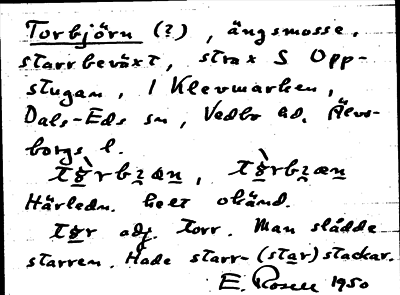 Torbjörn (?), ängsmosse,
starrbeväxt, strax S Opp-
stugan, i Klevmarken,
Dals-Eds sn, Vedbo hd, Älvs-
borgs l.
Härledn. helt okänd.
adj. torr. Man slådde
starren. Hade starr- (star) stackar.
E. Rosell 1950